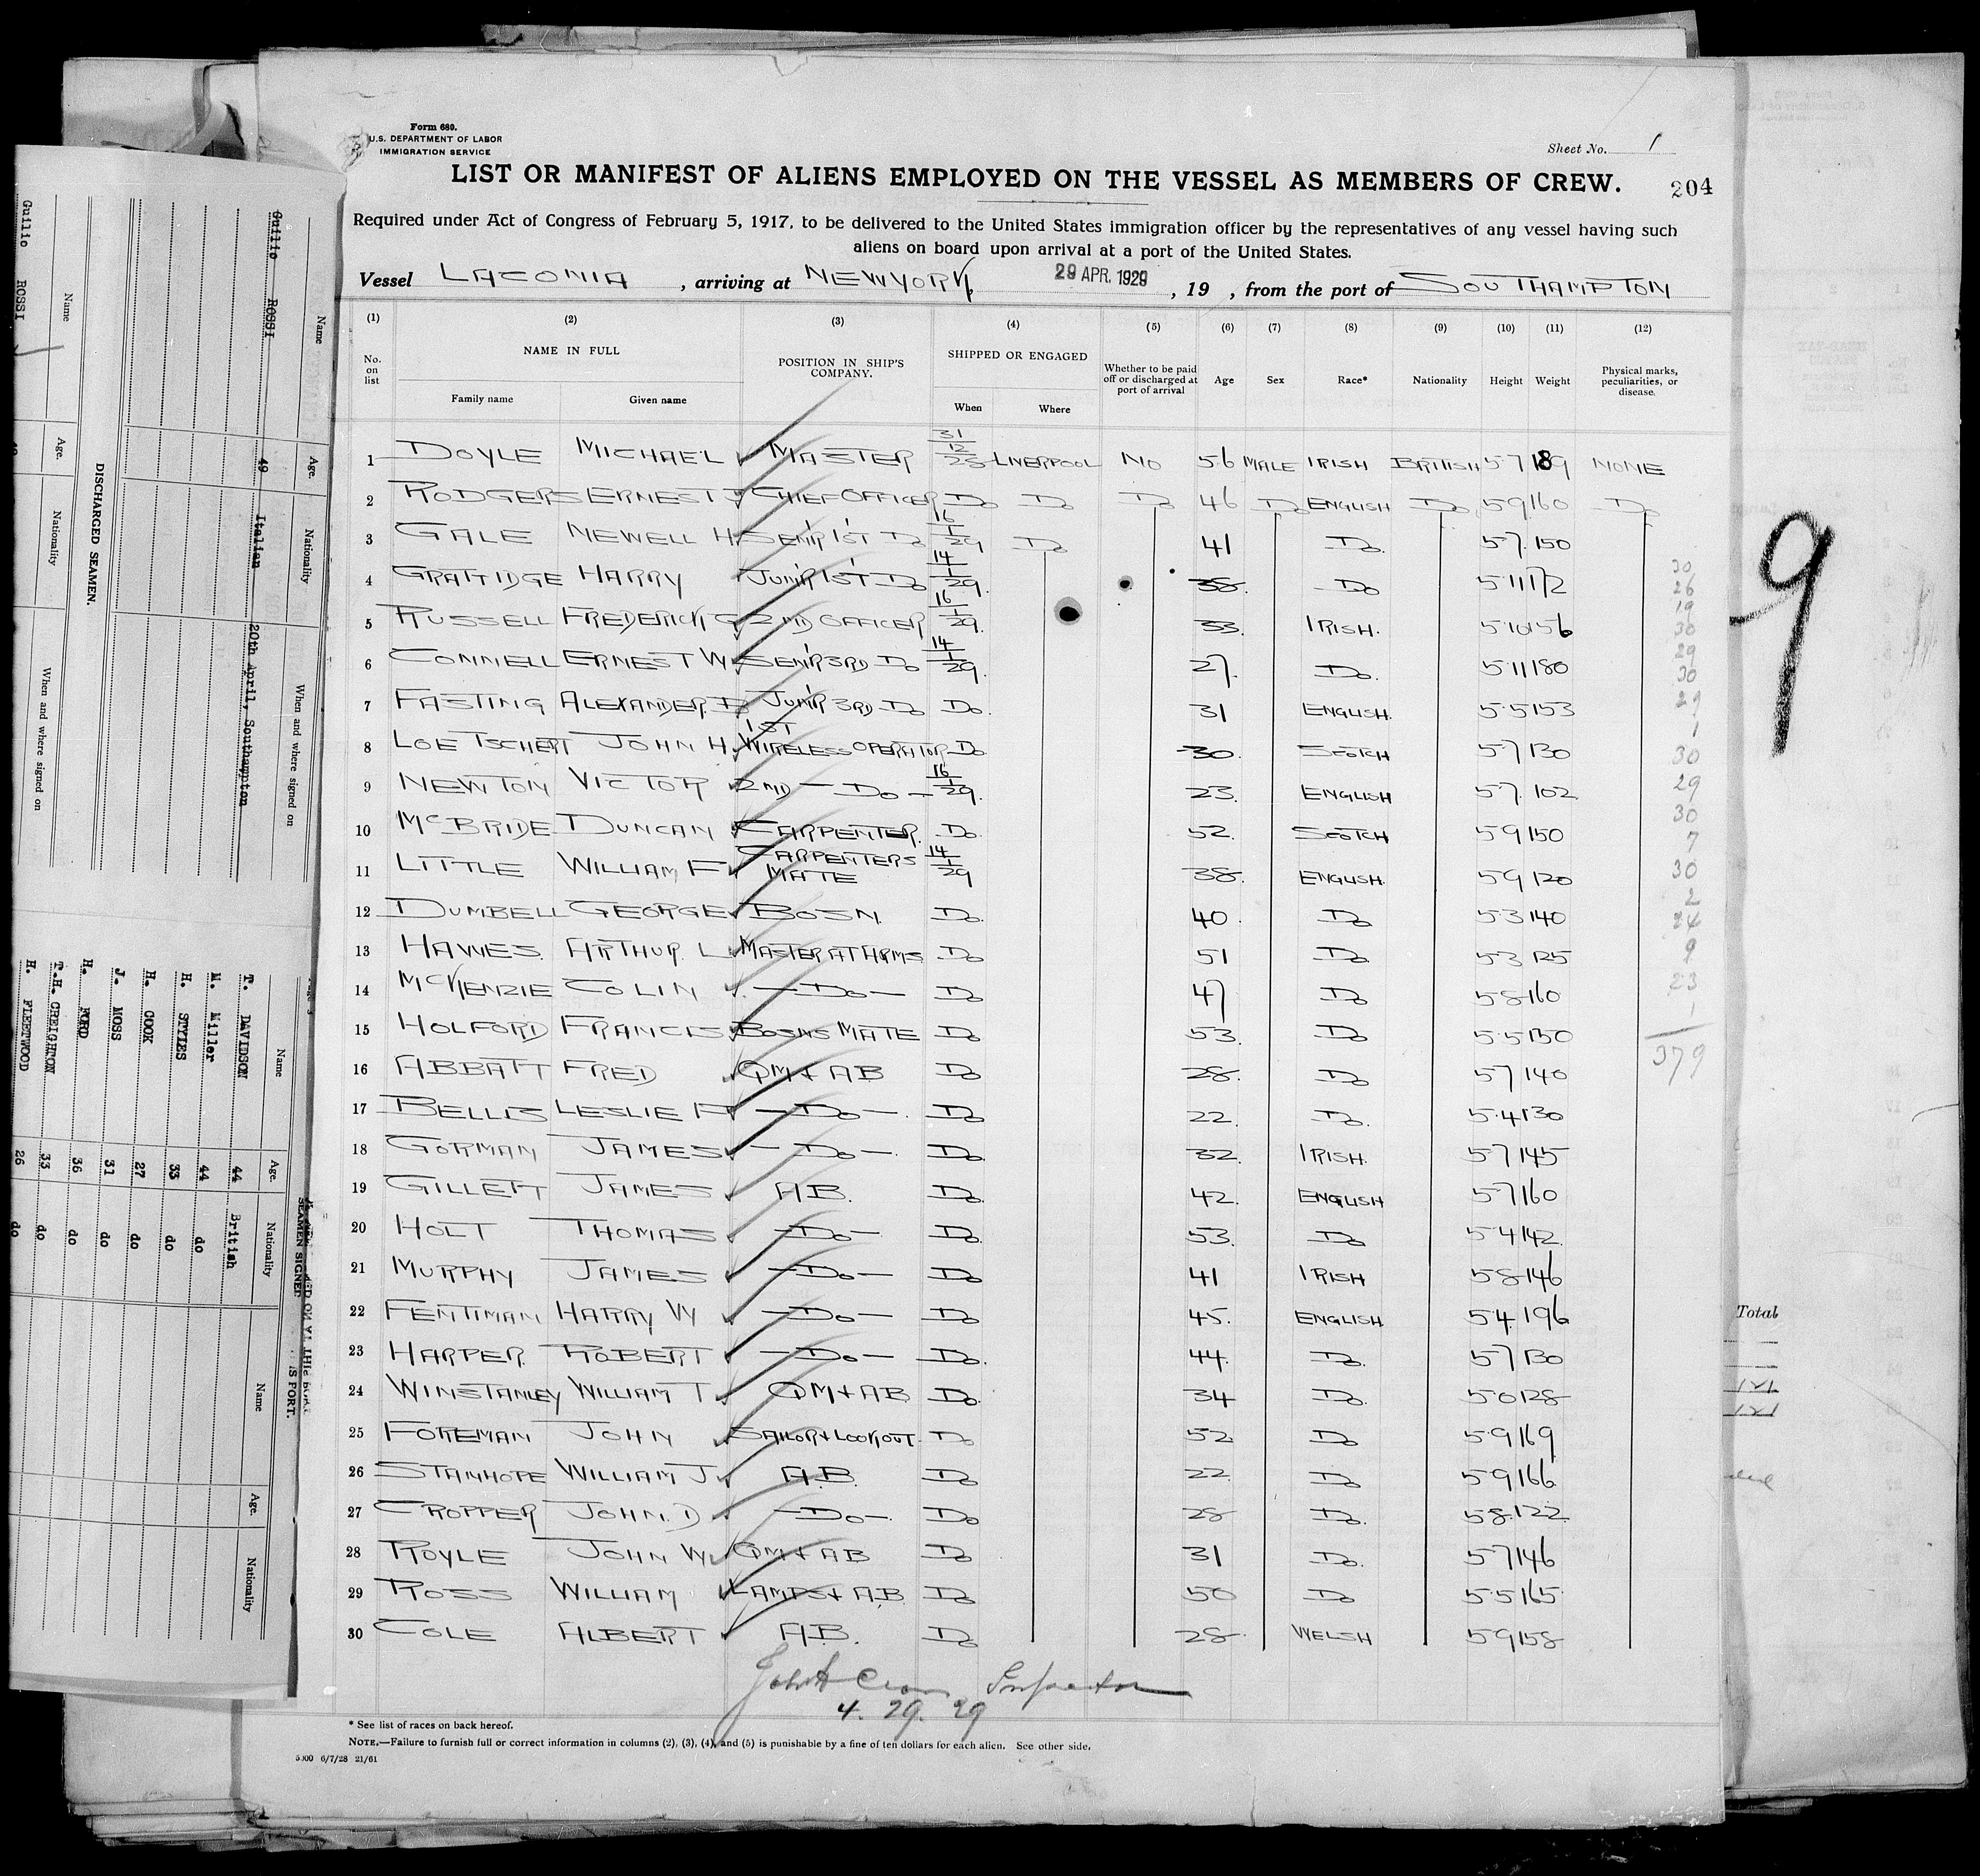 Form 689.
U.S. DEPARTMENT OF LABOR
IMMIGRATION SERVICE
Sheet No. 1
LIST OR MANIFEST OF ALIENS EMPLOYED ON THE VESSEL AS MEMBERS OF CREW.
204
Required under Act of Congress of February 5, 1917, to be delivered to the United States immigration officer by the representatives of any vessel having such
aliens on board upon arrival at a port of the United States.
Vessel LACONIA, arriving at NEW YORK, 29 APR. 1929, 19 , from the port of SOUTHAMPTON
(1) (2) (3) (4) (5) (6) (7) (8) (9) (10) (11) (12)
No. on list NAME IN FULL Family name Given name POSITION IN SHIP'S COMPANY. SHIPPED OR ENGAGED When Where Whether to be paid off or discharged at port of arrival Age Sex Race* Nationality Height Weight Physical marks, peculiarities, or disease.
1 DOYLE MICHAEL MASTER 31/12/28 LIVERPOOL NO 56 MALE IRISH BRITISH 5 7 189 NONE
2 RODGERS ERNEST J CHIEF OFFICER Do Do Do 46 Do ENGLISH Do 5 9 160 Do
3 GALE NEWELL H SEN'R 1ST Do 16/1/29 Do 41 Do. 5 7 150
4 GRATTIDGE HARRY JUN'R 1ST Do 14/1/29. 38. Do 5 11 172
5 RUSSELL FREDERICK G 2ND OFFICER 16/1/29. 33. IRISH. 5 10 156
6 CONNELL ERNEST W SEN'R 3RD Do 14/1/29. 27. Do. 5 11 180
7 FASTING ALEXANDER. B JUN'R 3RD Do Do. 31 ENGLISH. 5 5 153
8 LOETSCHERT JOHN H. 1ST WIRELESS OPERATOR Do 30. SCOTCH 5 7 130
9 NEWTON VICTOR 2ND — Do — 16/1/29. 23. ENGLISH 5 7. 102
10 McBRIDE DUNCAN CARPENTER. Do. 52. SCOTCH 5 9 150
11 LITTLE WILLIAM F CARPENTERS MATE 14/1/29 38. ENGLISH. 5 9 120
12 DUMBELL GEORGE BOSN. Do. 40. Do 5 3 140
13 HAWES. ARTHUR. L MASTER AT ARMS Do 51 Do. 5 3 125
14 McKENZIE COLIN — Do — Do 47 Do 5 8 160
15 HOLFORD FRANCIS BOSNS MATE Do 53. Do 5 5 130
16 ABBATT FRED QM + AB Do 28. Do 5 7 140
17 BELLIS LESLIE A — Do —. Do 22. Do. 5 4 130
18 GORMAN JAMES — Do —. Do 32. IRISH. 5 7 145
19 GILLETT JAMES A B. Do. 42. ENGLISH 5 7 160
20 HOLT THOMAS — Do — Do. 53. Do 5 4 142
21 MURPHY JAMES — Do — Do. 41 IRISH 5 8 146
22 FENTIMAN HARRY W — Do — Do 45. ENGLISH 5 4. 196
23 HARPER. ROBERT — Do — Do. 44. Do. 5 7 130
24 WINSTANLEY WILLIAM T. QM + AB Do. 34 Do. 5 0 128
25 FOREMAN JOHN SAILOR + LOOKOUT. Do 52 Do 5 9 169
26 STANHOPE WILLIAM J. A.B. Do 22. Do 5 9 166
27 CROPPER JOHN. D — Do —. Do 28 Do. 5 8. 122
28 ROYLE JOHN W QM + AB Do 31 Do. 5 7 146
29 ROSS WILLIAM LAMPS + A.B. Do 50 Do 5 5 165
30 COLE ALBERT A.B. Do 28. WELSH 5 9 158
30
26
19
30
29
30
29
1
30
29
30
7
30
2
24
9
23
1
379
Inspector
4. 29. 29
* See list of races on back hereof.
NOTE.—Failure to furnish full or correct information in columns (2), (3), (4), and (5) is punishable by a fine of ten dollars for each alien. See other side.
5000 6/7/28 21/61
9
Total
121
121
DISCHARGED SEAMEN.
Name Age. Nationality When and where signed on
Guilio ROSSI 49 Italian 20th April, Southampton
Name Age. Nationality When and where signed on
Guilio ROSSI
SEAMEN SIGNED
Name Age. Nationality
T. DAVIDSON 44 British
M. Miller 44 do
H. STYLES 33 do
H. COOK 27 do
J. MOSS 31 do
H. FORD 36 do
T.H. CREIGHTON 33 do
H. FLEETWOOD 26 do
Name Age. Nationality